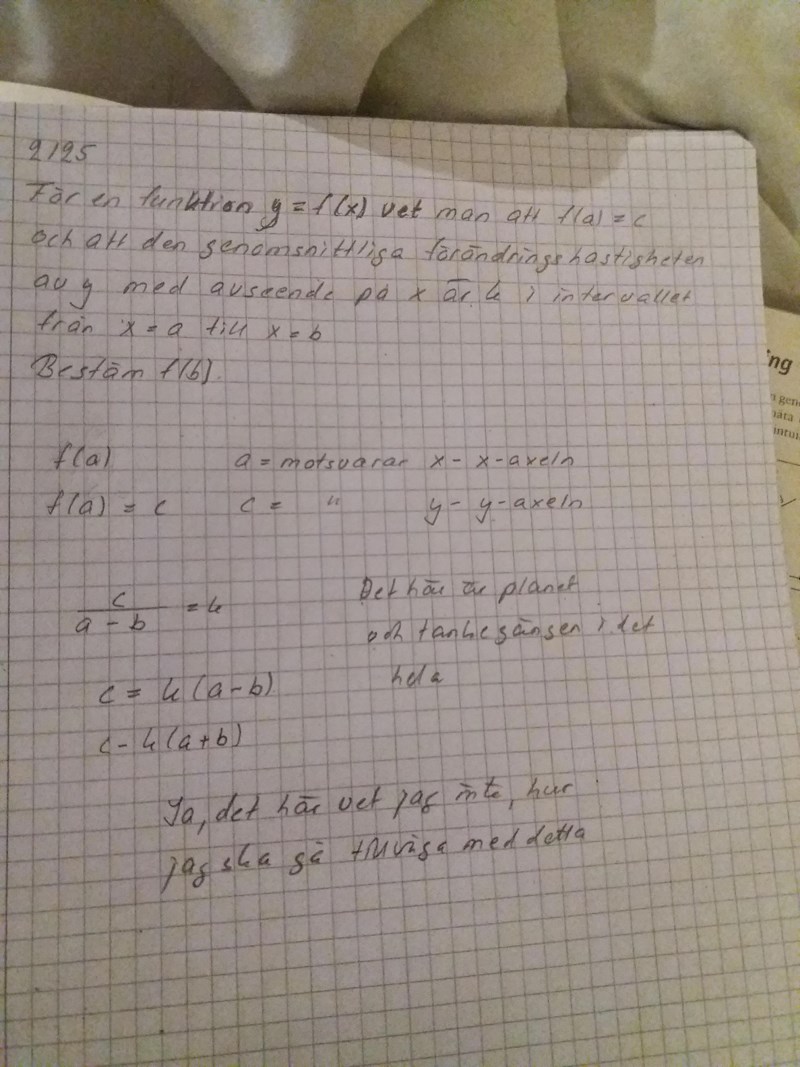 2125
För en funktion y = f(x) vet man att f(a) = c
och att den genomsnittliga förändringshastigheten
av y med avseende på x är k i intervallet
från x = a till x = b
Bestäm f(b).
f(a) a = motsvarar x - x-axeln
f(a) = c c = " y - y-axeln
c
a - b = k
Det här är planet
och tankegången i det
hela
c = k (a-b)
c - k (a+b)
Ja, det här vet jag inte, hur
jag ska gå tillväga med detta
ing
gen